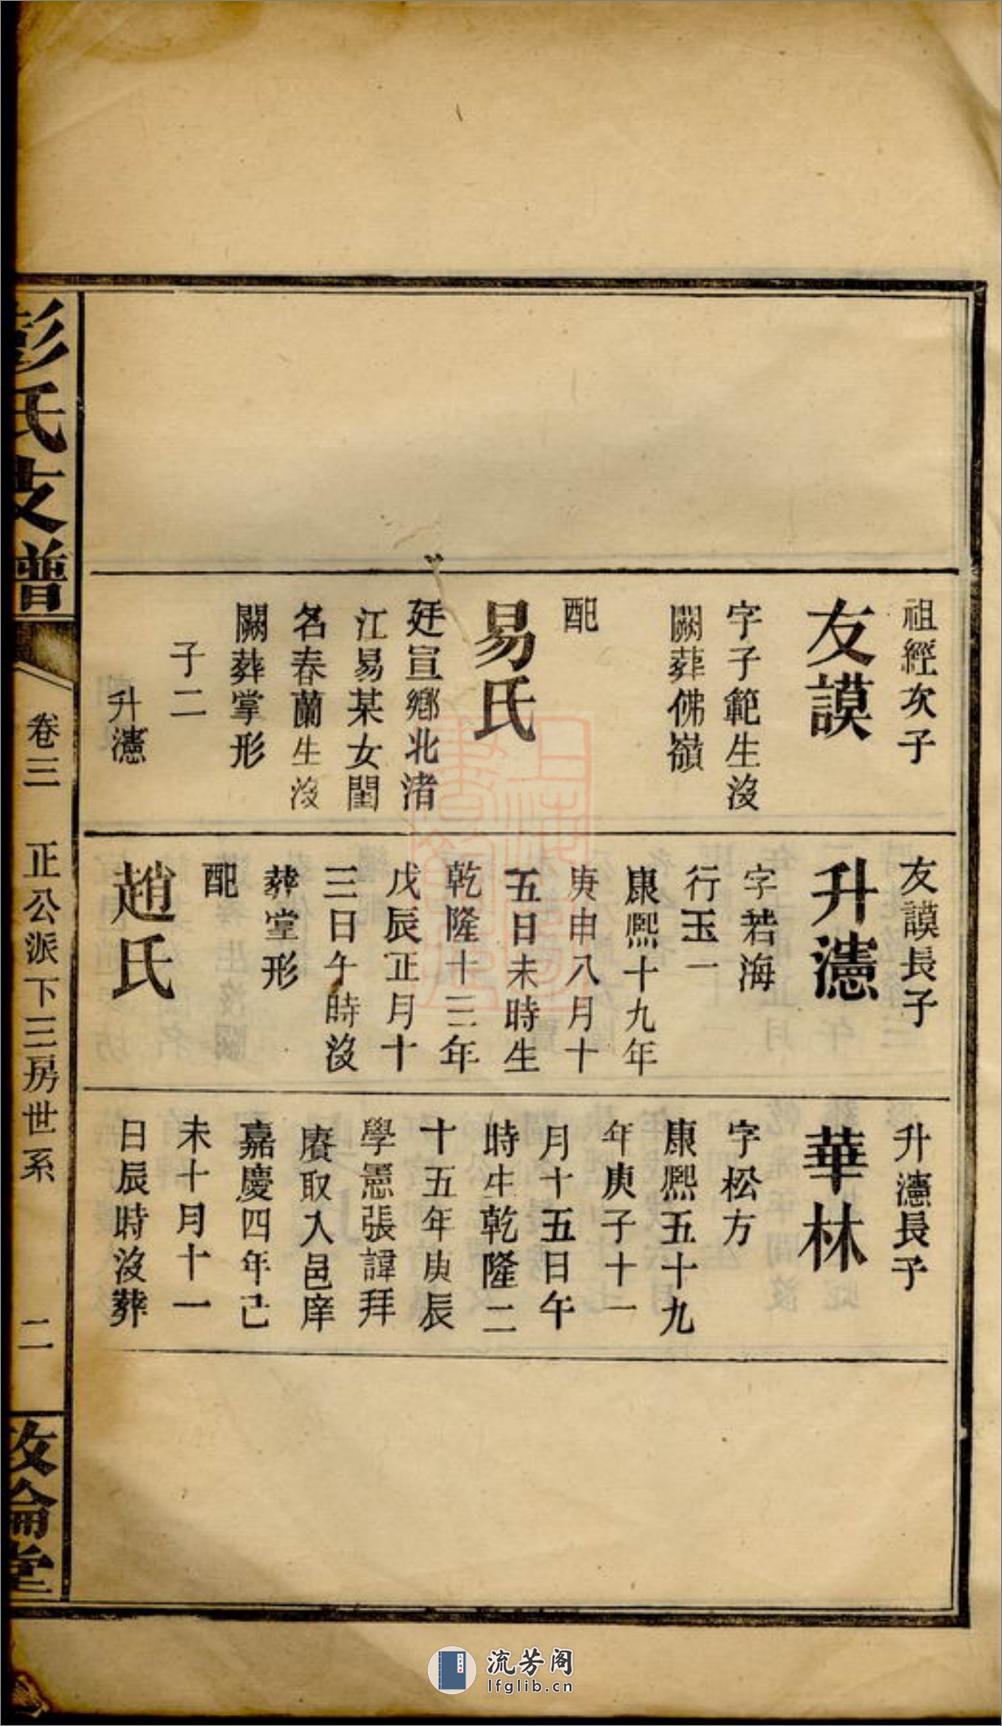 祖經次子
友謨
字子範生沒
闕葬佛嶺
配
易氏
廷宣鄉北渚
江易某女閨
名春蘭生沒
闕葬掌形
子二
升瀗
友謨長子
升瀗
字若海
行玉一
康熙十九年
庚申八月十
五日未時生
乾隆十三年
戊辰正月十
三日午時沒
葬堂形
配
趙氏
升瀗長子
華林
字松方
康熙五十九
年庚子十一
月十五日午
時生乾隆二
十五年庚辰
學憲張諱拜
賡取入邑庠
嘉慶四年己
未十月十一
日辰時沒葬
彭氏支譜
卷三
正公派下三房世系
二
敦倫堂
流芳阁
lfglib.cn